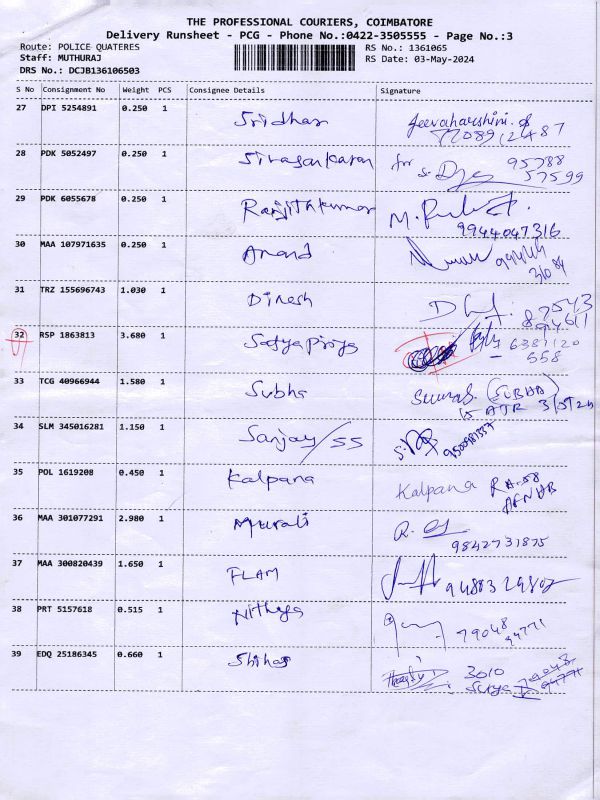 THE PROFESSIONAL COURIERS, COIMBATORE
Delivery Runsheet - PCG - Phone No.:0422-3505555 - Page No.:3
Route: POLICE QUATERES RS No.: 1361065
Staff: MUTHURAJ RS Date: 03-May-2024
DRS No.: DCJB136106503
S No Consignment No Weight PCS Consignee Details Signature
27 DPI 5254891 0.250 1 Sridhar Jeevaharshini
28 PDK 5052497 0.250 1 Sivasankaran for 95788
57599
29 PDK 6055678 0.250 1 Ranjithkumar
9944047316
30 MAA 107971635 0.250 1 Anand
31 TRZ 155696743 1.030 1 Dinesh
32 RSP 1863813 3.680 1 Satyapriya 6381120
558
33 TCG 40966944 1.580 1 Subha (SUBHA)
34 SLM 345016281 1.150 1 Sanjay/SS
35 POL 1619208 0.450 1 Kalpana Kalpana
36 MAA 301077291 2.980 1 Murali
9842731875
37 MAA 300820439 1.650 1 FLAM
38 PRT 5157618 0.515 1 Nithya 79048
94771
39 EDQ 25186345 0.660 1 3010
Surya